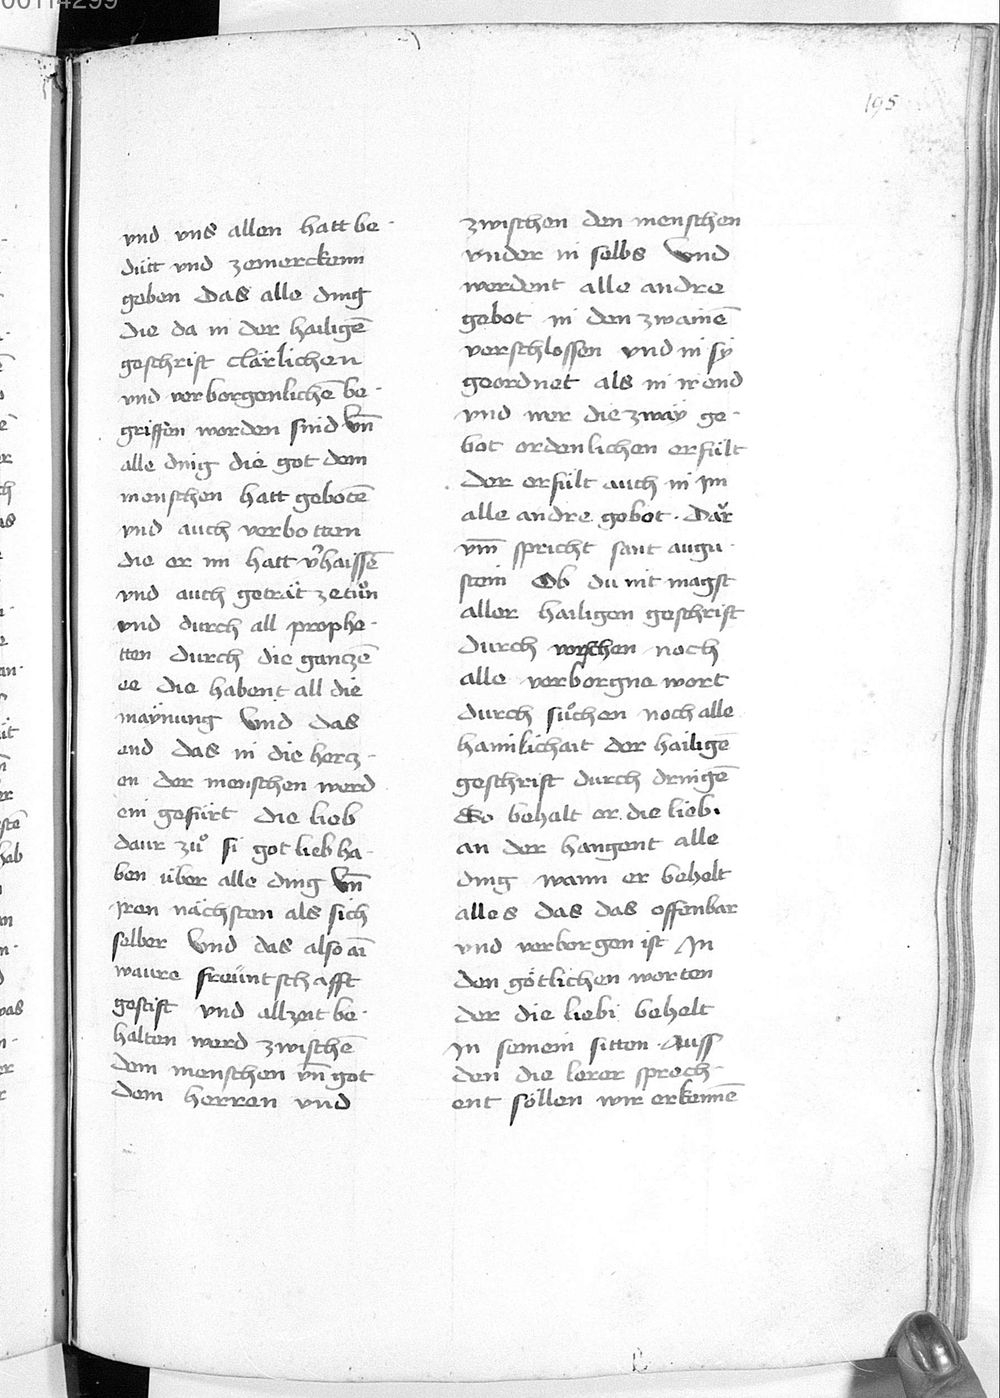 195
vnd vns allen hatt be-
dütt vnd zemerckenn
geben Das alle ding
die da in der hailigē
geschrift clärlichen
vnd verborgenlichē be-
griffen worden sind Vn̄
alle ding die got dem
menschen hatt gebotē
vnd auch verbotten
die er im hatt v̉haissē
vnd auch geträt zetůn
vnd durch all prophe-
tten durch die ganczē
ee die habent all die
maÿnung Vnd das
end das in die hercz-
en der menschen werd
ein gefürt die lieb
daur zů si got lieb ha-
ben über alle ding Vn̄
Jren nächsten als sich
selber Vnd das also aī
waure freüntschafft
gestift vnd allzeit be-
halten werd zwischē
dem menschen vn̄ got
dem herren vnd
zwischen den menschen
vnder in selbs Vnd
werdent alle andre
gebot in den zwainē
verschlossen vnd in sÿ
geordnet als in ir end
vnd wer die zwaÿ ge-
bot ordenlichen erfült
der erfült auch in Jm
alle andre gebot. Dar
vm̄ spricht sant augu-
stein Ob du nit magst
aller hailigen geschrift
durch vorschen noch
alle verborgne wort
durch sůchen noch alle
hainlichait der hailigē
geschrift durch dringē
So behalt er die liebi
an der hangent alle
ding wann er behelt
alles das das offenbar
vnd verborgen ist Jn
den götlichen worten
der die liebi behelt
Jn seinem sitten Auss
den die lerer sprech-
ent söllen wir erkennē